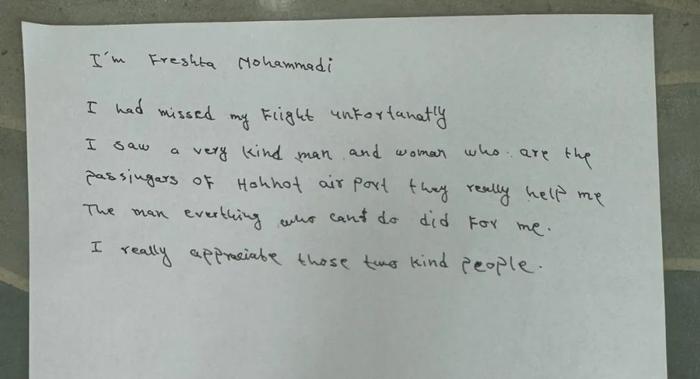 I'm Freshta Mohammadi
I had missed my Flight unfortunatly
I saw a very kind man and woman who are the
passjugars of Hohhot air port they really help me
The man everthing who cant do did for me.
I really appraciate those two kind people.